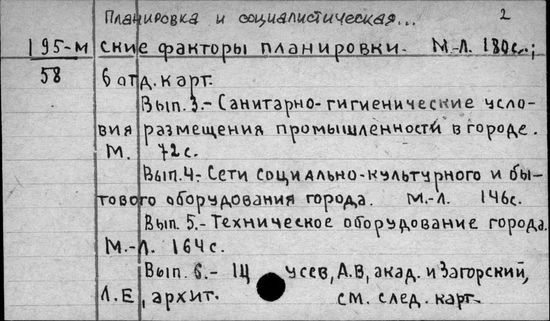 Планировка и социалистическая... 2
195-м ские факторы планировки. М.-Л. 180с.;
58 6 отд. карт.
Вып. 3.- Санитарно-гигиенические усло-
вия размещения промышленности в городе.
М. 72 с.
Вып. 4.- Сети социально-культурного и бы-
тового оборудования города. М.-Л. 146с.
Вып. 5.- Техническое оборудование города.
М.-Л. 164 с.
Вып. 6.- Щусев, А.В, акад. и Загорский,
Л.Е, архит. см. след. карт.